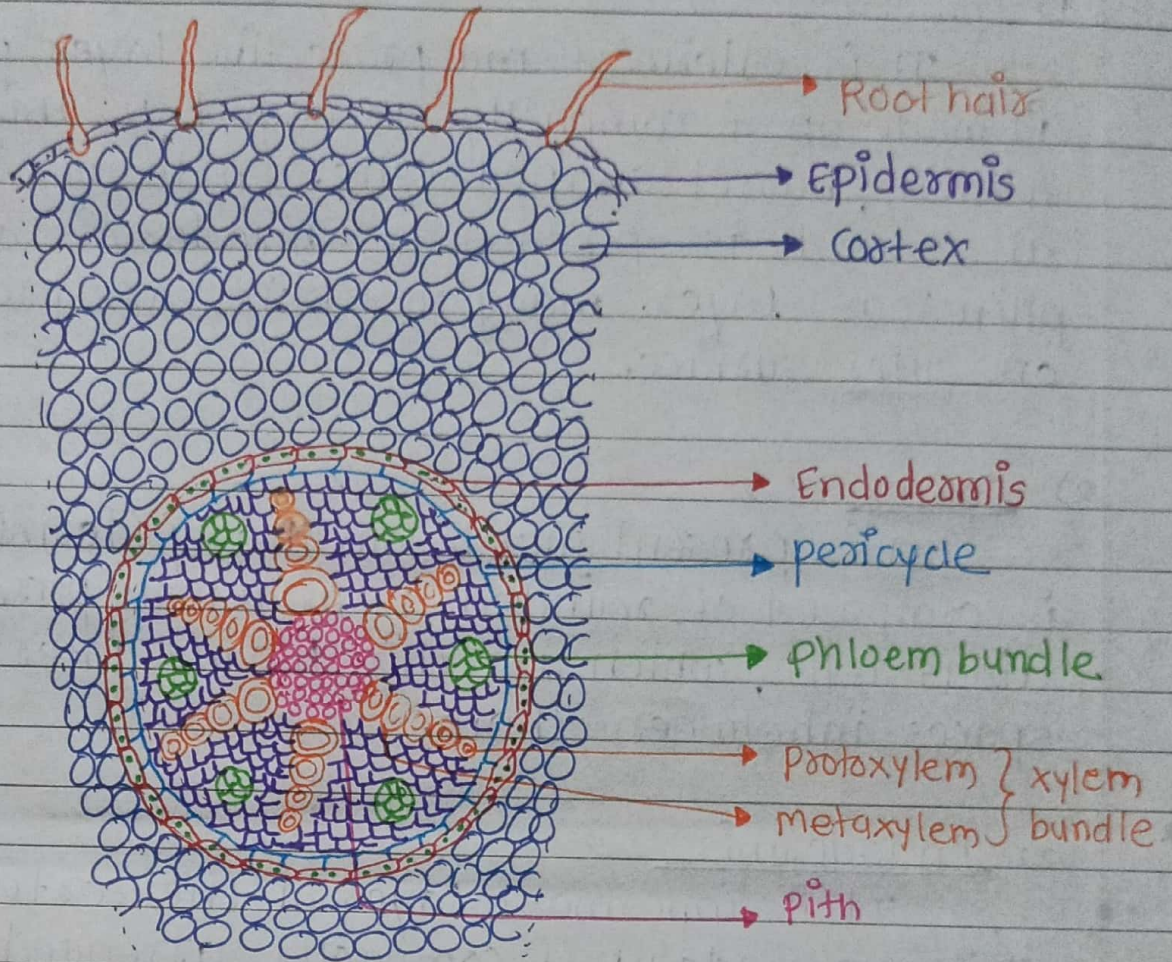 Root hair
Epidermis
Cortex
Endodermis
pericycle
phloem bundle
protoxylem } xylem
metaxylem } bundle
pith